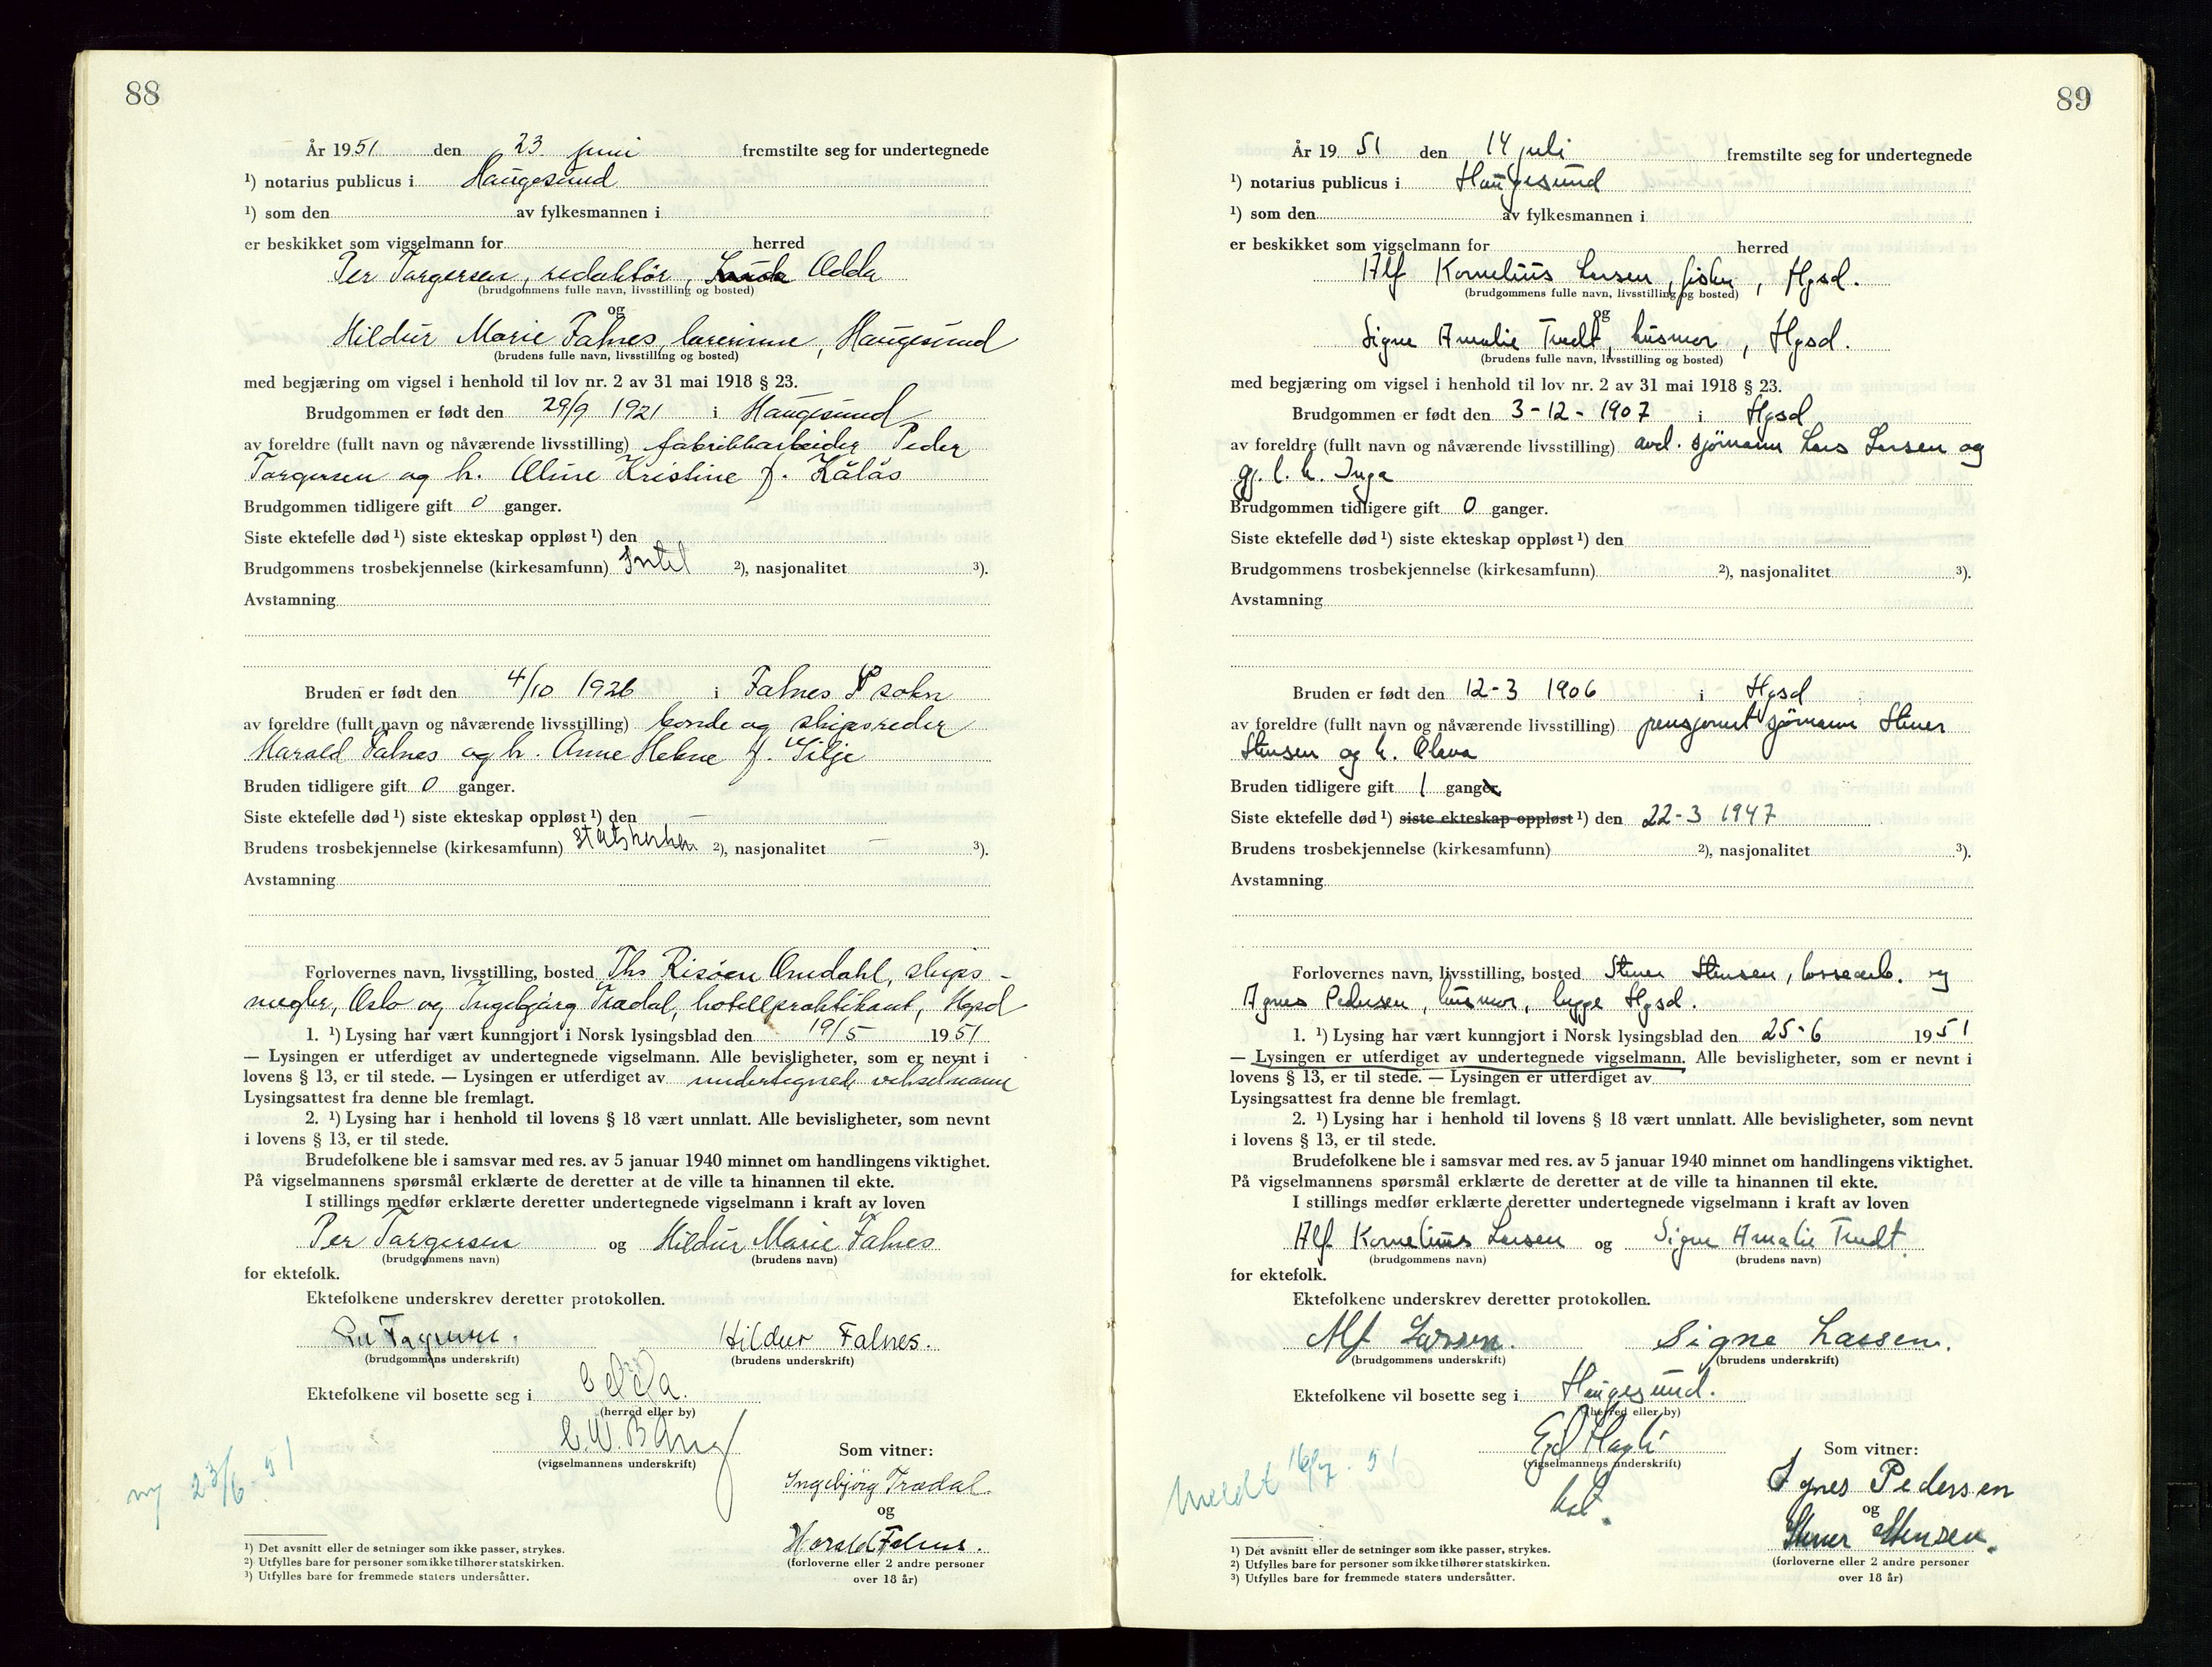 88
År 1951 den 23. juni fremstilte seg for undertegnede
¹) notarius publicus i Haugesund
¹) som den av fylkesmannen i
er beskikket som vigselmann for herred
Per Torgersen, redaktør, Odda
(brudgommens fulle navn, livsstilling og bosted)
og
Hildur Marie Falnes, lærerinne, Haugesund
(brudens fulle navn, livsstilling og bosted)
med begjæring om vigsel i henhold til lov nr. 2 av 31 mai 1918 § 23.
Brudgommen er født den 29/9 1921 i Haugesund
av foreldre (fullt navn og nåværende livsstilling) fabrikkarbeider Peder
Torgersen og h. Oline Kristine f. Kålås
Brudgommen tidligere gift 0 ganger.
Siste ektefelle død ¹) siste ekteskap oppløst ¹) den
Brudgommens trosbekjennelse (kirkesamfunn) Intet ²), nasjonalitet ³).
Avstamning
Bruden er født den 4/10 1926 i Falnes sokn
av foreldre (fullt navn og nåværende livsstilling) bonde og skipsreder
Harald Falnes og h. Anne Helene f. Silje
Bruden tidligere gift 0 ganger.
Siste ektefelle død ¹) siste ekteskap oppløst ¹) den —
Brudens trosbekjennelse (kirkesamfunn) statskirken ²), nasjonalitet — ³).
Avstamning
Forlovernes navn, livsstilling, bosted Ths Risøen Omdahl, skips-
megler, Oslo og Ingebjørg Trædal, hotellpraktikant, Hgsd
1. ¹) Lysing har vært kunngjort i Norsk lysingsblad den 19/5 1951
— Lysingen er utferdiget av undertegnede vigselmann. Alle bevisligheter, som er nevnt i
lovens § 13, er til stede. — Lysingen er utferdiget av undertegnede vikselmann
Lysingsattest fra denne ble fremlagt.
2. ¹) Lysing har i henhold til lovens § 18 vært unnlatt. Alle bevisligheter, som nevnt
i lovens § 13, er til stede.
Brudefolkene ble i samsvar med res. av 5 januar 1940 minnet om handlingens viktighet.
På vigselmannens spørsmål erklærte de deretter at de ville ta hinannen til ekte.
I stillings medfør erklærte deretter undertegnede vigselmann i kraft av loven
Per Torgersen og Hildur Marie Falnes
(brudgommens navn) (brudens navn)
for ektefolk.
Ektefolkene underskrev deretter protokollen.
Per Torgersen. Hildur Falnes.
(brudgommens underskrift) (brudens underskrift)
Ektefolkene vil bosette seg i Odda.
(herred eller by)
C.W. Bang
(vigselmannens underskrift)
Som vitner:
Ingebjörg Trædal.
og
Harald Falnes.
(forloverne eller 2 andre personer
over 18 år)
23/6-51
¹) Det avsnitt eller de setninger som ikke passer, strykes.
²) Utfylles bare for personer som ikke tilhører statskirken.
³) Utfylles bare for fremmede staters undersåtter.
89
År 1951 den 14 juli fremstilte seg for undertegnede
¹) notarius publicus i Haugesund
¹) som den av fylkesmannen i
er beskikket som vigselmann for herred
Alf Kornelius Larsen, fisker, Hgsd.
(brudgommens fulle navn, livsstilling og bosted)
og
Signe Amalie Tvedt, husmor, Hgsd.
(brudens fulle navn, livsstilling og bosted)
med begjæring om vigsel i henhold til lov nr. 2 av 31 mai 1918 § 23.
Brudgommen er født den 3-12-1907 i Hgsd
av foreldre (fullt navn og nåværende livsstilling) avd. sjømann Lars Larsen og
gj. l. h. Inga
Brudgommen tidligere gift 0 ganger.
Siste ektefelle død ¹) siste ekteskap oppløst ¹) den
Brudgommens trosbekjennelse (kirkesamfunn) ²), nasjonalitet ³).
Avstamning
Bruden er født den 12-3 1906 i Hgsd
av foreldre (fullt navn og nåværende livsstilling) pensjonert sjømann Stener
Stensen og h. Olava
Bruden tidligere gift 1 ganger.
Siste ektefelle død ¹) siste ekteskap oppløst ¹) den 22-3 1947
Brudens trosbekjennelse (kirkesamfunn) ²), nasjonalitet ³).
Avstamning
Forlovernes navn, livsstilling, bosted Stener Stensen, lossearb. og
Agnes Pedersen, husmor, begge Hgsd.
1. ¹) Lysing har vært kunngjort i Norsk lysingsblad den 25-6 1951
— Lysingen er utferdiget av undertegnede vigselmann. Alle bevisligheter, som er nevnt i
lovens § 13, er til stede. — Lysingen er utferdiget av
Lysingsattest fra denne ble fremlagt.
2. ¹) Lysing har i henhold til lovens § 18 vært unnlatt. Alle bevisligheter, som nevnt
i lovens § 13, er til stede.
Brudefolkene ble i samsvar med res. av 5 januar 1940 minnet om handlingens viktighet.
På vigselmannens spørsmål erklærte de deretter at de ville ta hinannen til ekte.
I stillings medfør erklærte deretter undertegnede vigselmann i kraft av loven
Alf Kornelius Larsen og Signe Amalie Tvedt
(brudgommens navn) (brudens navn)
for ektefolk.
Ektefolkene underskrev deretter protokollen.
Alf Larsen. Signe Larsen.
(brudgommens underskrift) (brudens underskrift)
Ektefolkene vil bosette seg i Haugesund.
(herred eller by)
(vigselmannens underskrift)
Som vitner:
Agnes Pedersen
og
Stener Stensen.
(forloverne eller 2 andre personer
over 18 år)
Meldt 16/7-51
¹) Det avsnitt eller de setninger som ikke passer, strykes.
²) Utfylles bare for personer som ikke tilhører statskirken.
³) Utfylles bare for fremmede staters undersåtter.